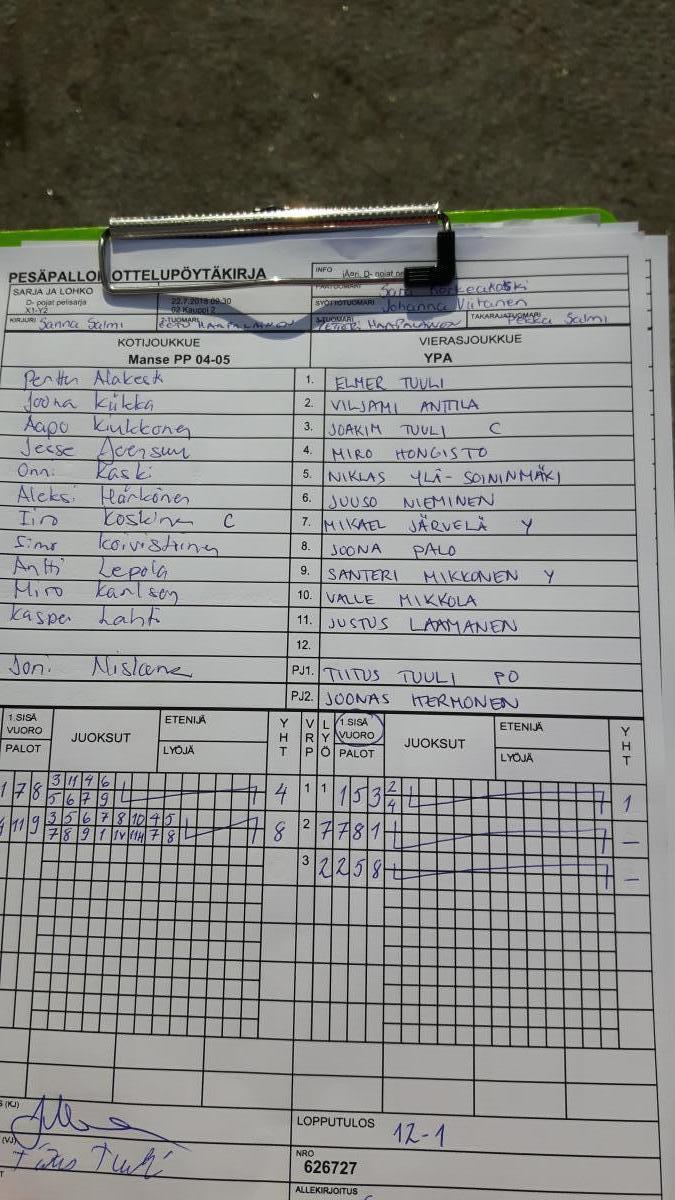 PESÄPALLO OTTELUPÖYTÄKIRJA
INFO
SARJA JA LOHKO
D- pojat pelisarja
X1-Y2
22.7.2018 09.30
02 Kauppi 2
SYÖTTÖTUOMARI Johanna Viitanen
KIRJURI Sanna Salmi
2-TUOMARI
3-TUOMARI
TAKARAJATUOMARI Pekka Salmi
KOTIJOUKKUE VIERASJOUKKUE
Manse PP 04-05 YPA
Perttu Alakesk 1. ELMER TUULI
Joona Kiikka 2. VILJAMI ANTTILA
Aapo Kiukkonen 3. JOAKIM TUULI C
Jesse 4. MIRO HONGISTO
Onni Kaski 5. NIKLAS YLÄ-SOININMÄKI
Aleksi Härkönen 6. JUUSO NIEMINEN
Iiro Koskinen C 7. MIKAEL JÄRVELÄ Y
Simo Koivistinen 8. JOONA PALO
Antti Lepola 9. SANTERI MIKKONEN Y
Miro Karlson 10. VALLE MIKKOLA
Kasper Lahti 11. JUSTUS LAAMANEN
12.
Joni Niskanen PJ1. TIITUS TUULI PO
PJ2. JOONAS HERMONEN
1.SISÄ VUORO JUOKSUT ETENIJÄ YHT VRP LYÖ 1.SISÄ VUORO JUOKSUT ETENIJÄ YHT
PALOT LYÖJÄ PALOT LYÖJÄ
1 7 8 3 11 4 6 4 1 1 1 5 3 2 1
5 6 7 9 4
11 9 3 5 6 7 8 10 4 5 8 2 7 7 8 1 –
7 8 9 1 7 8
3 2 2 5 8 –
(KJ)
LOPPUTULOS
12-1
(VJ)
Titus Tuuli
NRO
626727
ALLEKIRJOITUS